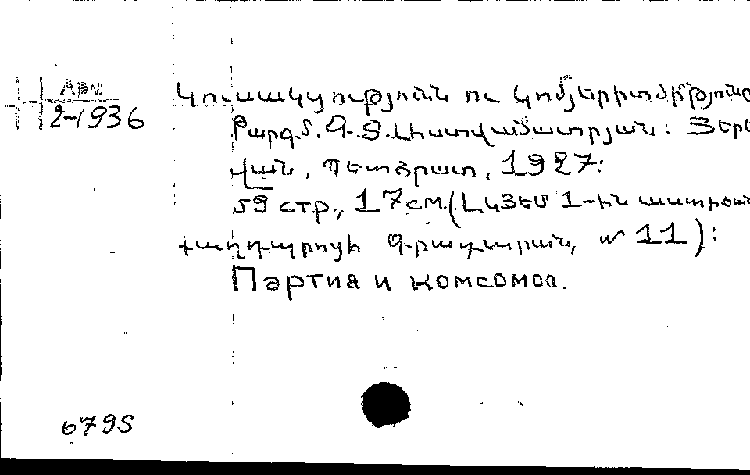 Арм
2-1936
Կուսակցություն ու կոմյերիտմիություն
Թարգմ. Գ. Տ. Աստվածատրյան: Յերե
վան, Պետհրատ, 1927:
59 стр., 17 см. (ԼԿՅԵՄ 1-ին աստիճան
քաղդպրոցի գրադարան, № 11):
Партия и комсомол.
6795